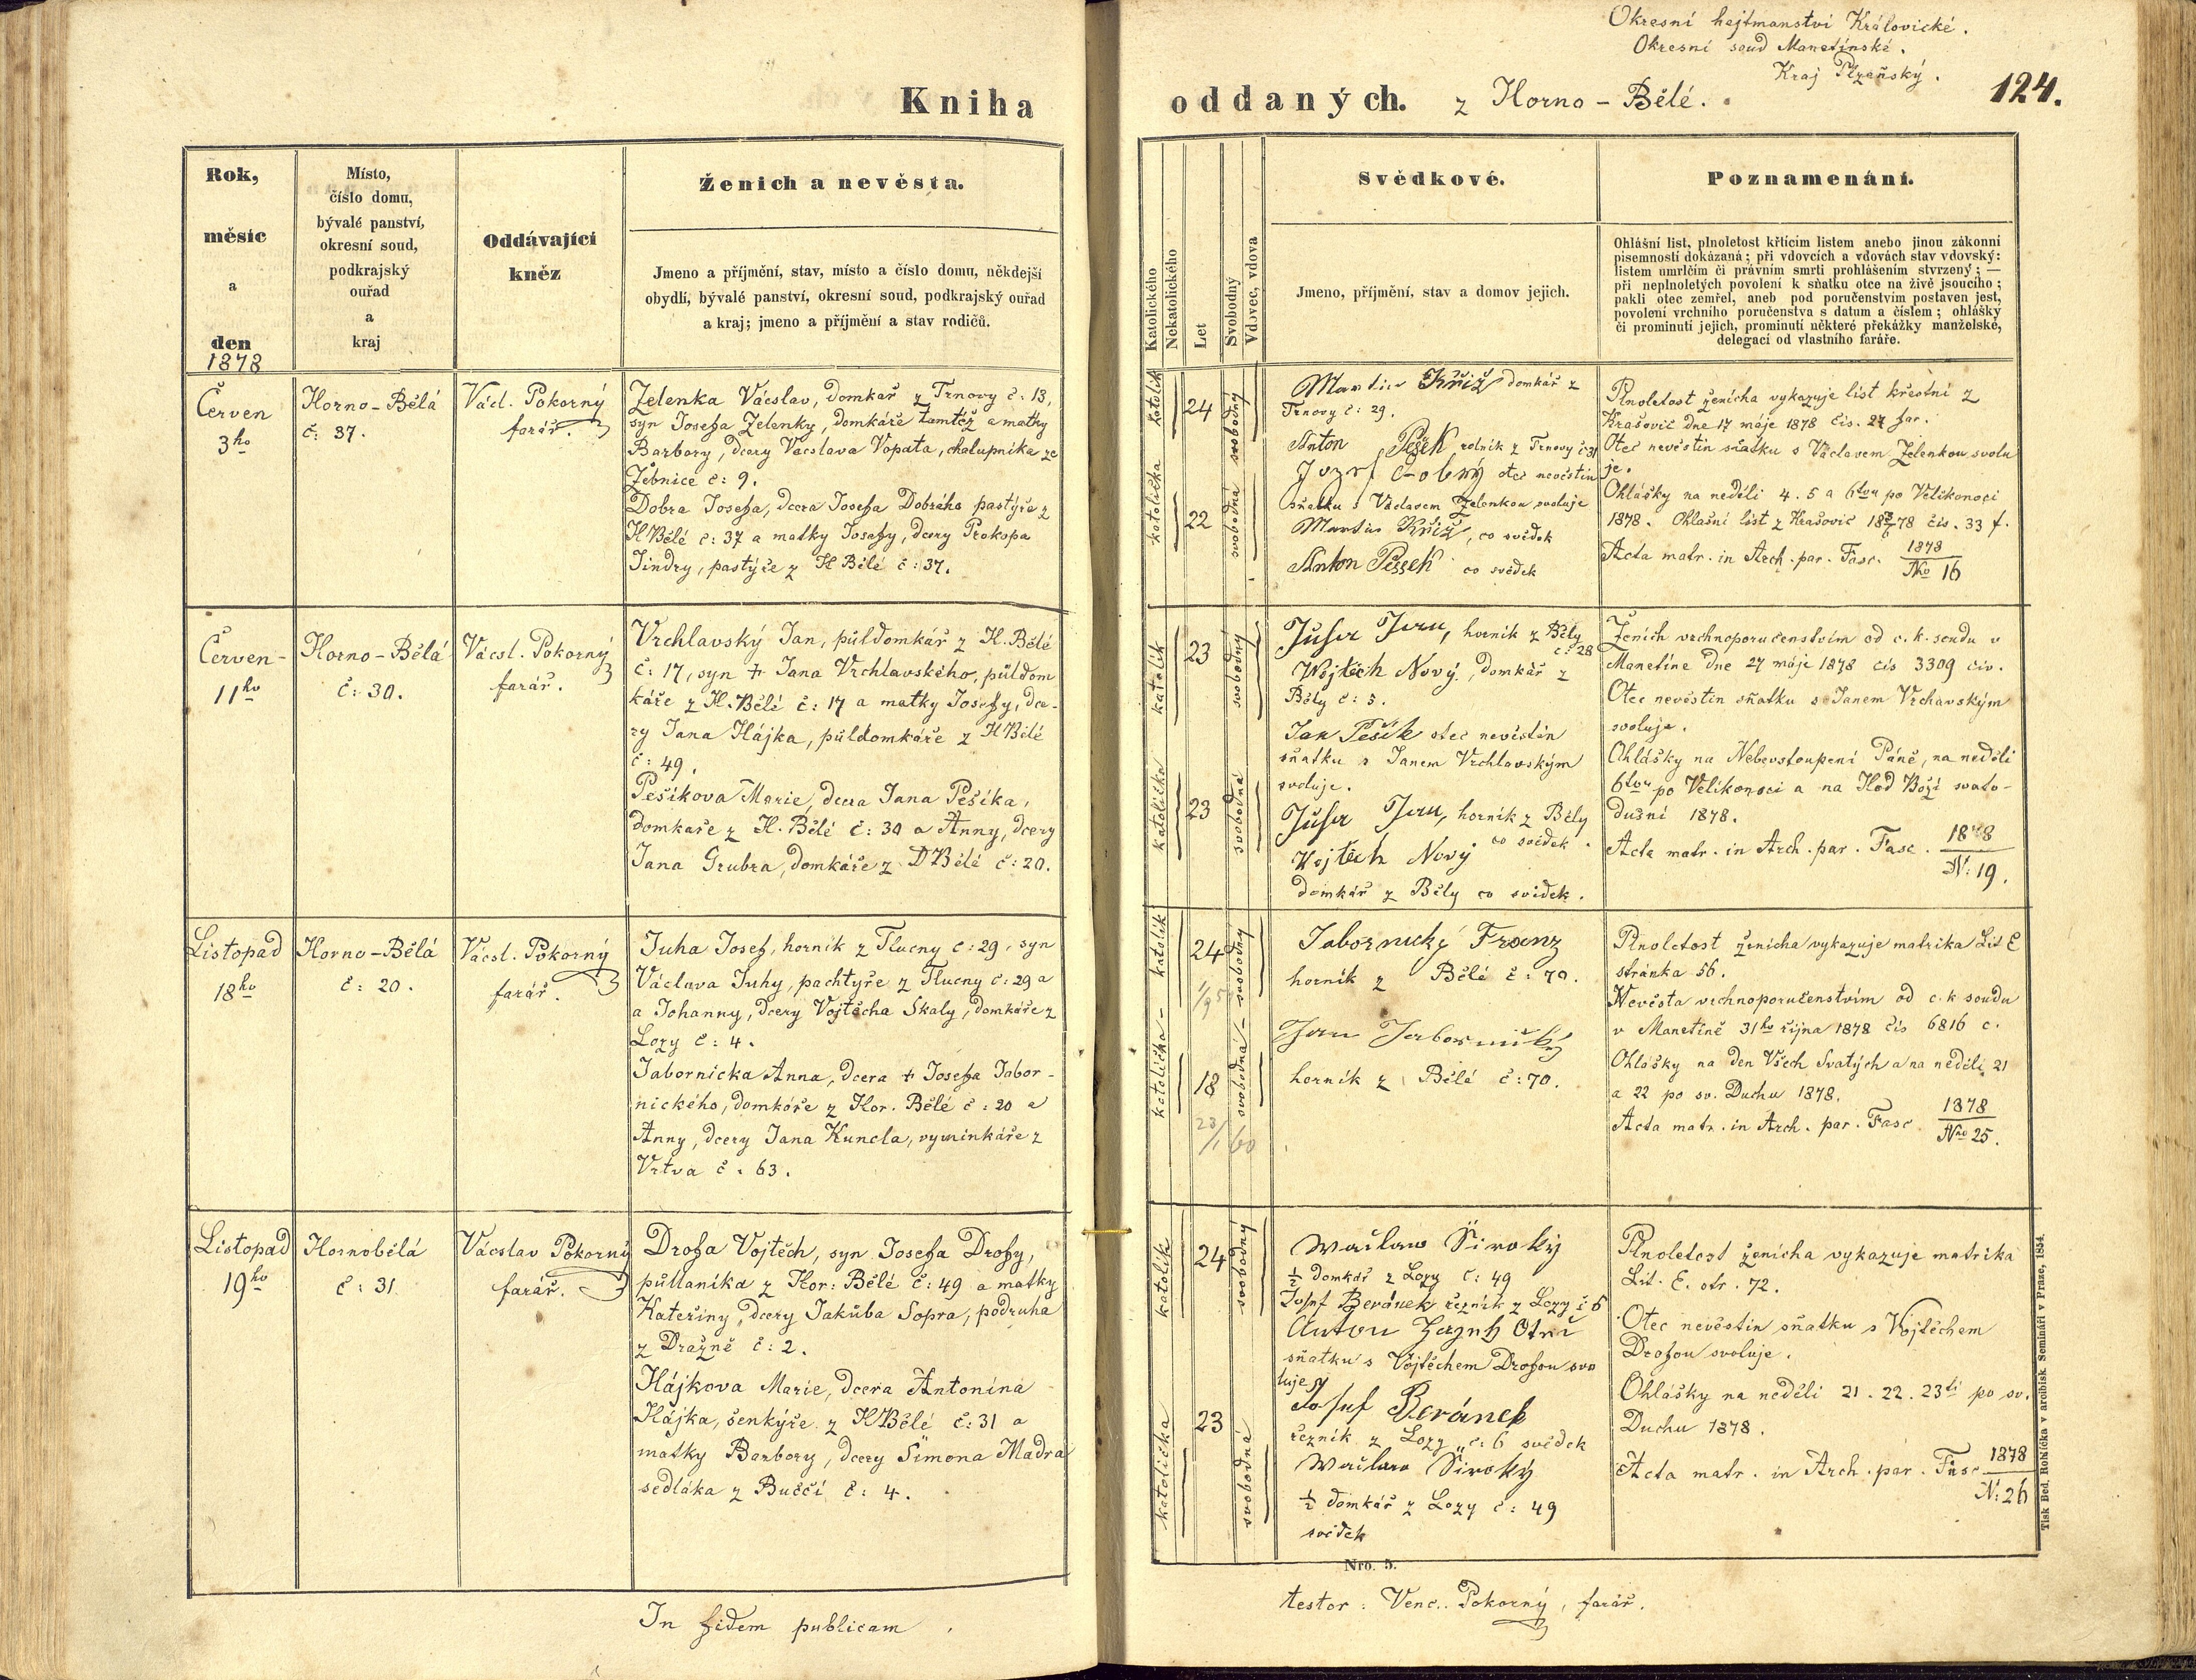 Kniha
Rok,
měsíc
a
den
1878
Místo,
číslo domu,
bývalé panství,
okresní soud,
podkrajský
ouřad
a
kraj
Oddávající
kněz
Ženich a nevěsta.
Jmeno a příjmění, stav, místo a číslo domu, někdejší
obydlí, bývalé panství, okresní soud, podkrajský ouřad
a kraj; jmeno a příjmění a stav rodičů.
Červen
3ho
Horno-Bělá
č: 37.
Václ. Pokorný
farář.
Zelenka Václav, domkař z Trnovy č: 13,
syn Josefa Zelenky, domkáře tamtéž a matky
Barbory, dcery Vácslava Vopata, chalupníka ze
Žebnice č: 9.
Dobra Josefa, dcera Josefa Dobrého pastýře z
H Bělé č: 37 a matky Josefy, dcery Prokopa
Jindry, pastýře z H Bělé č: 37.
Červen-
11ho
Horno-Bělá
č: 30.
Vácsl. Pokorný
farář.
Vrchlavský Jan, půldomkář z H. Bělé
č: 17, syn † Jana Vrchlavského, půldom
káře z H. Bělé č: 17 a matky Josefy, dce-
ry Jana Hájka, půldomkáře z H Bělé
č: 49.
Pešíkova Marie, dcera Jana Pešíka,
domkaře z H. Bělé č: 30 a Anny, dcery
Jana Grubra, domkáře z D Bělé č: 20.
Listopad
18ho
Horno-Bělá
č: 20.
Vácsl. Pokorný
farář.
Juha Josef, horník z Tlucny č: 29, syn
Václava Juhy, pachtýře z Tlucny č: 29 a
a Johanny, dcery Vojtěcha Skaly, domkáře z
Lozy č: 4.
Jabornicka Anna, dcera † Josefa Jabor-
nického, domkáře z Hor. Bělé č: 20 a
Anny, dcery Jana Kuncla, vyminkáře z
Vrtva č: 63.
Listopad
19ho
Hornobělá
č: 31
Vácslav Pokorný
farář.
Drofa Vojtěch, syn Josefa Drofy,
půllaníka z Hor: Bělé č: 49 a matky
Kateřiny, dcery Jakuba Sopra, podruha
z Dražně č: 2.
Hájkova Marie, dcera Antonína
Hájka, šenkýře z H Bělé č: 31 a
matky Barbory, dcery Šimona Madra
sedláka z Bučči č: 4.
In fidem publicam
Okresní hejtmanství Královické.
Okresní soud Manetínské.
Kraj Plzeňský.
124.
oddaných. z Horno-Bělé.
Katolického
Nekatolického
Let
Svobodný
Vdovec, vdova
Svědkové.
Jmeno, příjmění, stav a domov jejich.
Poznamenání.
Ohlášní list, plnoletost křtícím listem anebo jinou zákonní
písemností dokázaná; při vdovcích a vdovách stav vdovský:
listem umrlčím či právním smrti prohlášením stvrzený; —
při neplnoletých povolení k sňatku otce na živě jsoucího;
pakli otec zemřel, aneb pod poručenstvím postaven jest,
povolení vrchního poručenstva s datum a číslem; ohlášky
či prominutí jejich, prominutí některé překážky manželské,
delegací od vlastního faráře.
katolík
24
svobodný
katolička
22
svobodná
Martin Kříž domkář z
Trnovy č: 29.
Anton Pešek rolník z Trnovy č 31
Jozef Dobrý otec nevěstin
sňatku s Václavem Zelenkou svoluje
Martin Kříž, co svědek
Anton Peššek co svědek
Plnoletost ženicha vykazuje list křestní z
Krašovic dne 17 máje 1878 čis. 27 far.
Otec nevěstin sňatku s Václavem Zelenkou svolu
je.
Ohlášky na neděli 4. 5 a 6tou po Velikonoci
1878. Ohlašní list z Krašovic čis. 33 f.
Acta matr. in Arch. par. Fasc. 1878
No 16
katolík
23
svobodný
katolička
23
svobodná
Juha Jan, horník z Běly
č: 28
Wojtěch Nový, domkář z
Běly č: 5.
Jan Pešík otec nevěstin
sňatku s Janem Vrchlavským
svoluje.
Juha Jan, horník z Běly
co svědek.
Wojtěch Nový
domkář z Běly co svědek.
Ženich vrchnoporučenstvím od c. k. soudu v
Manetíne dne 27 máje 1878 čis 3309 civ.
Otec nevěstin sňatku s Janem Vrchavským
svoluje.
Ohlášky na Nebevstoupení Páně, na neděli
6tou po Velikonoci a na Hod Boží svato-
dušní 1878.
Acta matr. in Arch. par. Fasc. 1878
N: 19.
katolík
24
svobodný
katolička
18
svobodná
Jabornický Franz
horník z Bělé č: 70.
Jan Jabornický
horník z Bělé č: 70.
Plnoletost ženicha vykazuje matrika Lit E
stránka 56.
Nevěsta vrchnoporučenstvím od c. k soudu
v Manetíně 31ho října 1878 čis 6816 c.
Ohlášky na den Všech Svatých a na neděli 21
a 22 po sv. Duchu 1878.
Acta matr. in Arch. par. Fasc 1878
Nro 25.
katolík
24
svobodný
katolička
23
svobodná
Waclaw Široký
½ domkář z Lozy č: 49
Josef Beránek řezník z Lozy č 6
Anton
sňatku s Vojtěchem Drofou svo
luje
Josef Beránek
řezník z Lozy č: 6 svědek
Waclaw Široký
½ domkář z Lozy č: 49
svědek
Plnoletost ženicha vykazuje matrika
Lit. E. str. 72.
Otec nevěstin sňatku s Vojtěchem
Drofou svoluje.
Ohlášky na neděli 21. 22. 23tí po sv.
Duchu 1878.
Acta matr. in Arch. par. Fasc 1878
N: 26
Nro. 5.
Tisk Bed. Rohlíčka v arcibisk. Semináři v Praze, 1854.
testor: Venc. Pokorný, farář.